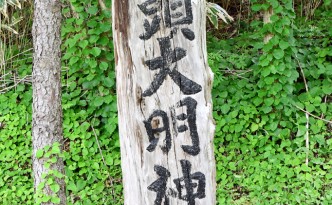 頭大明神